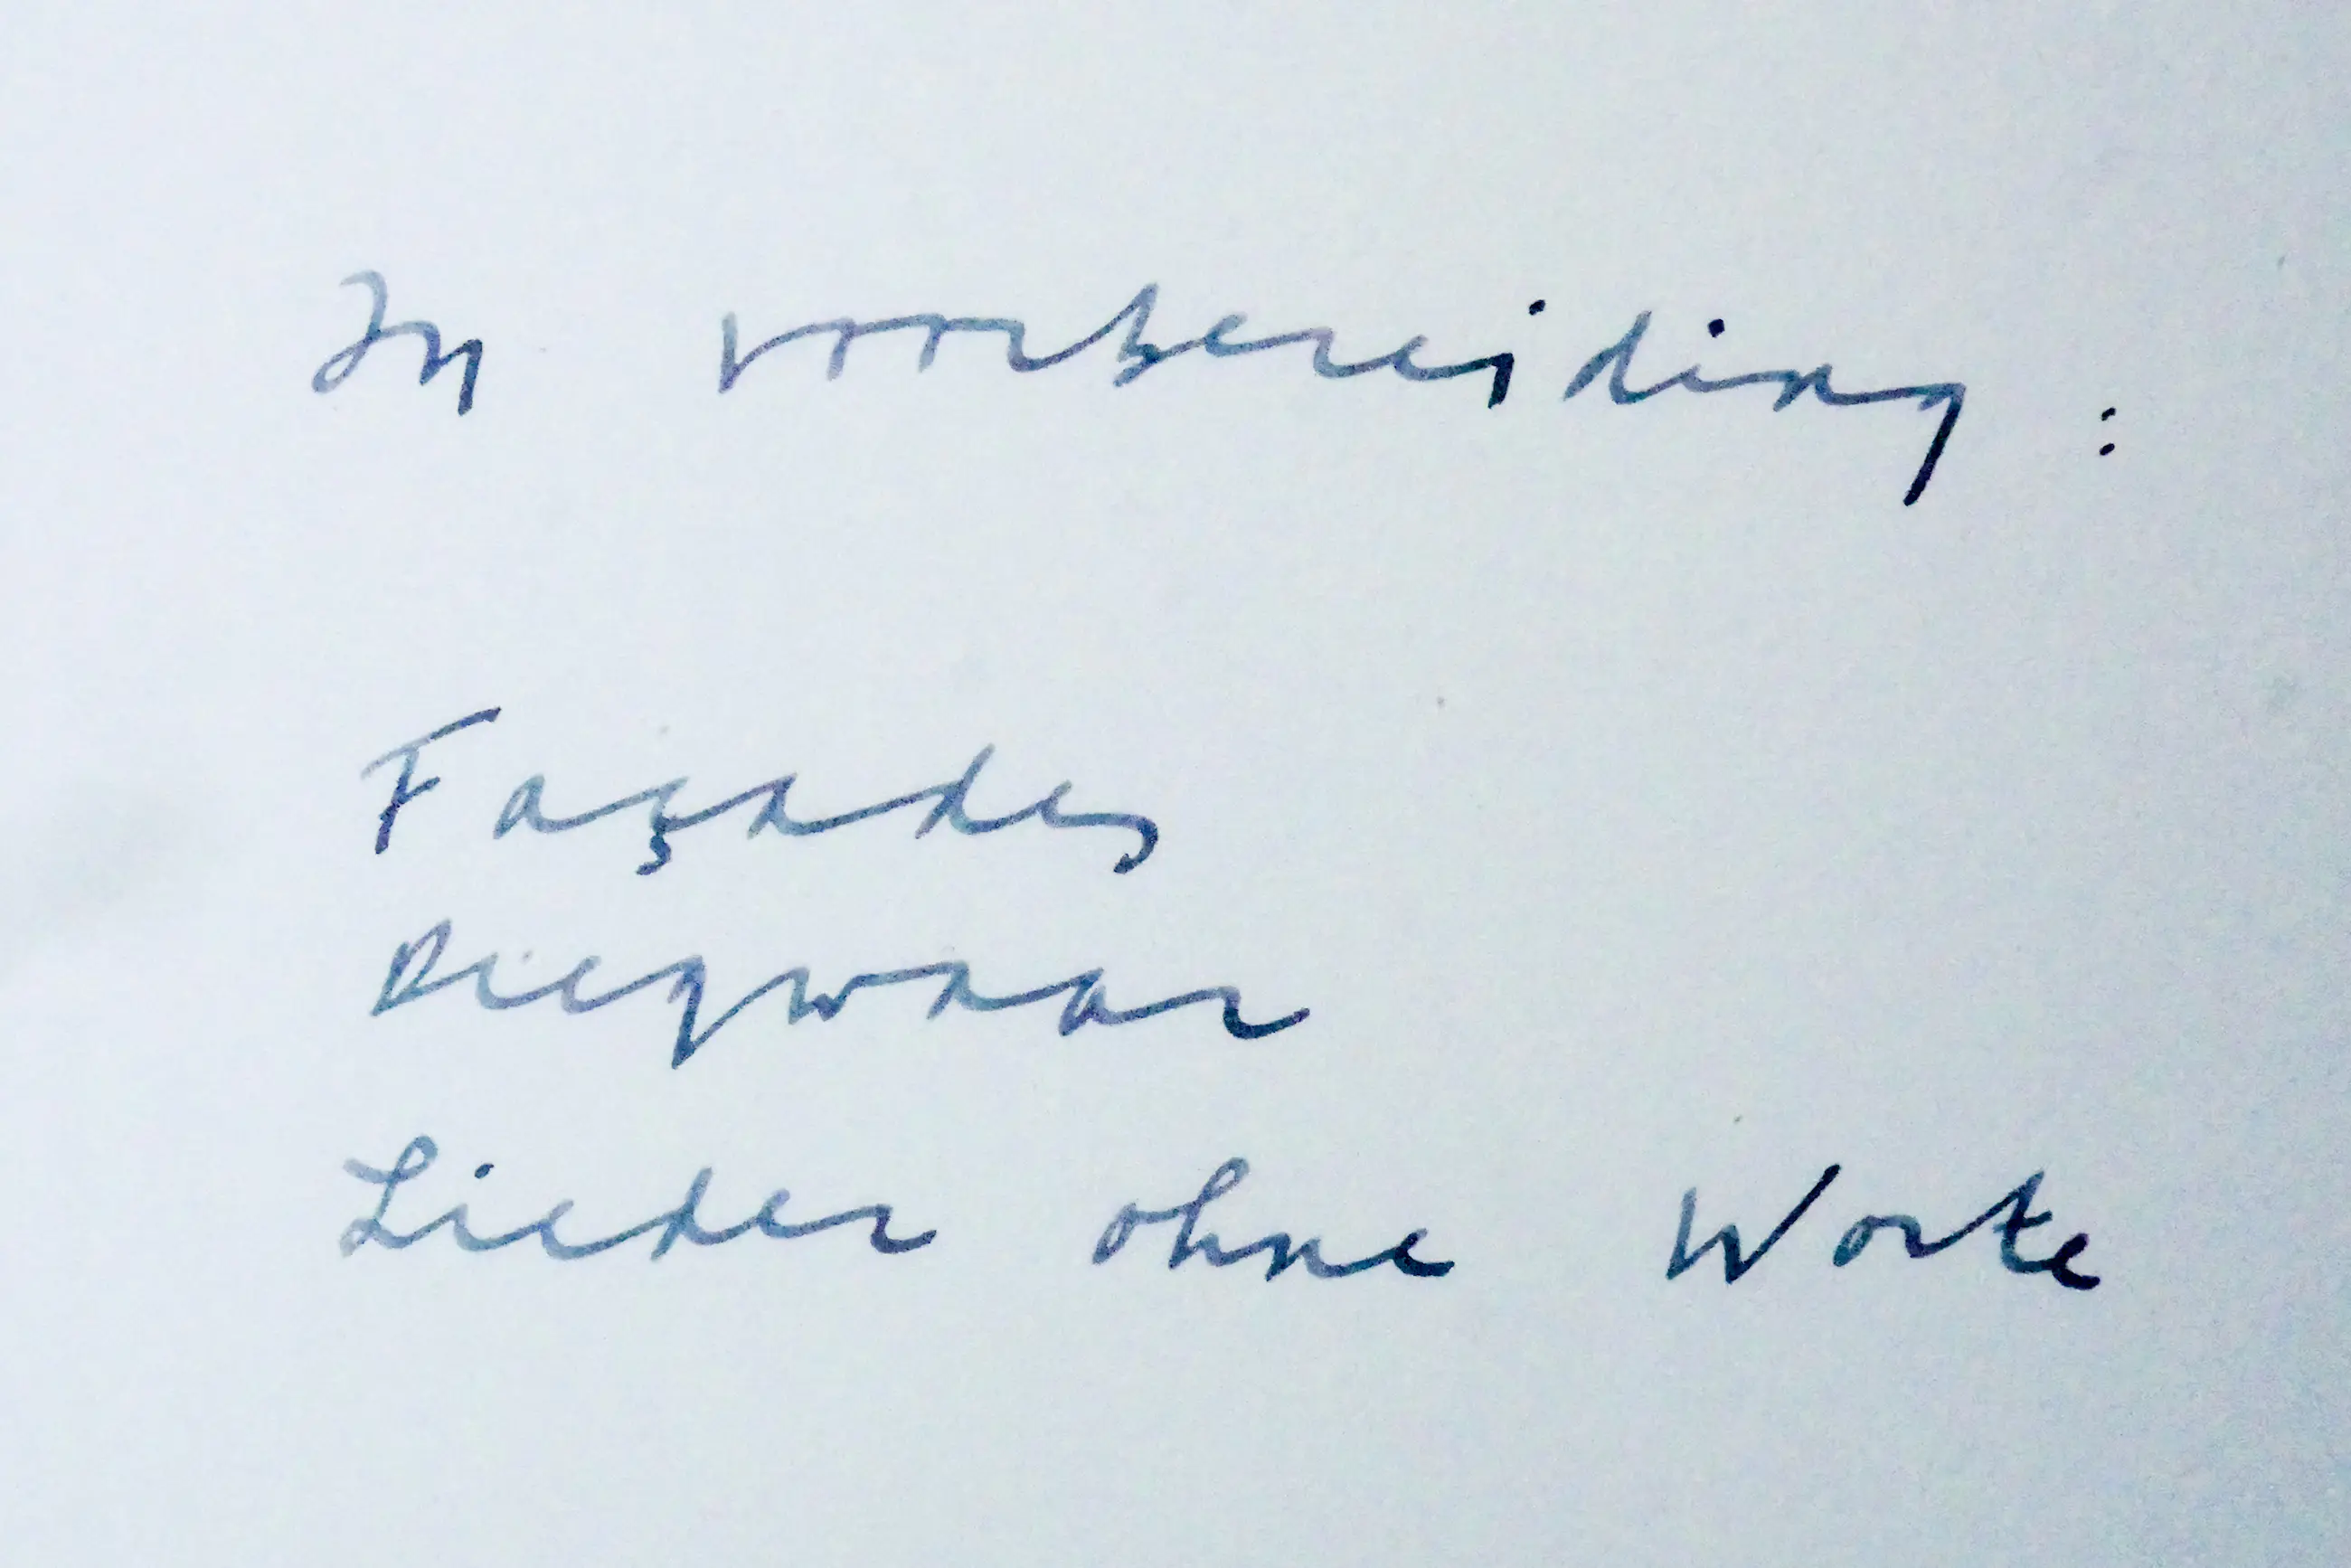 In voorbereiding :
Façades
Deegwaar
Lieder ohne Worte